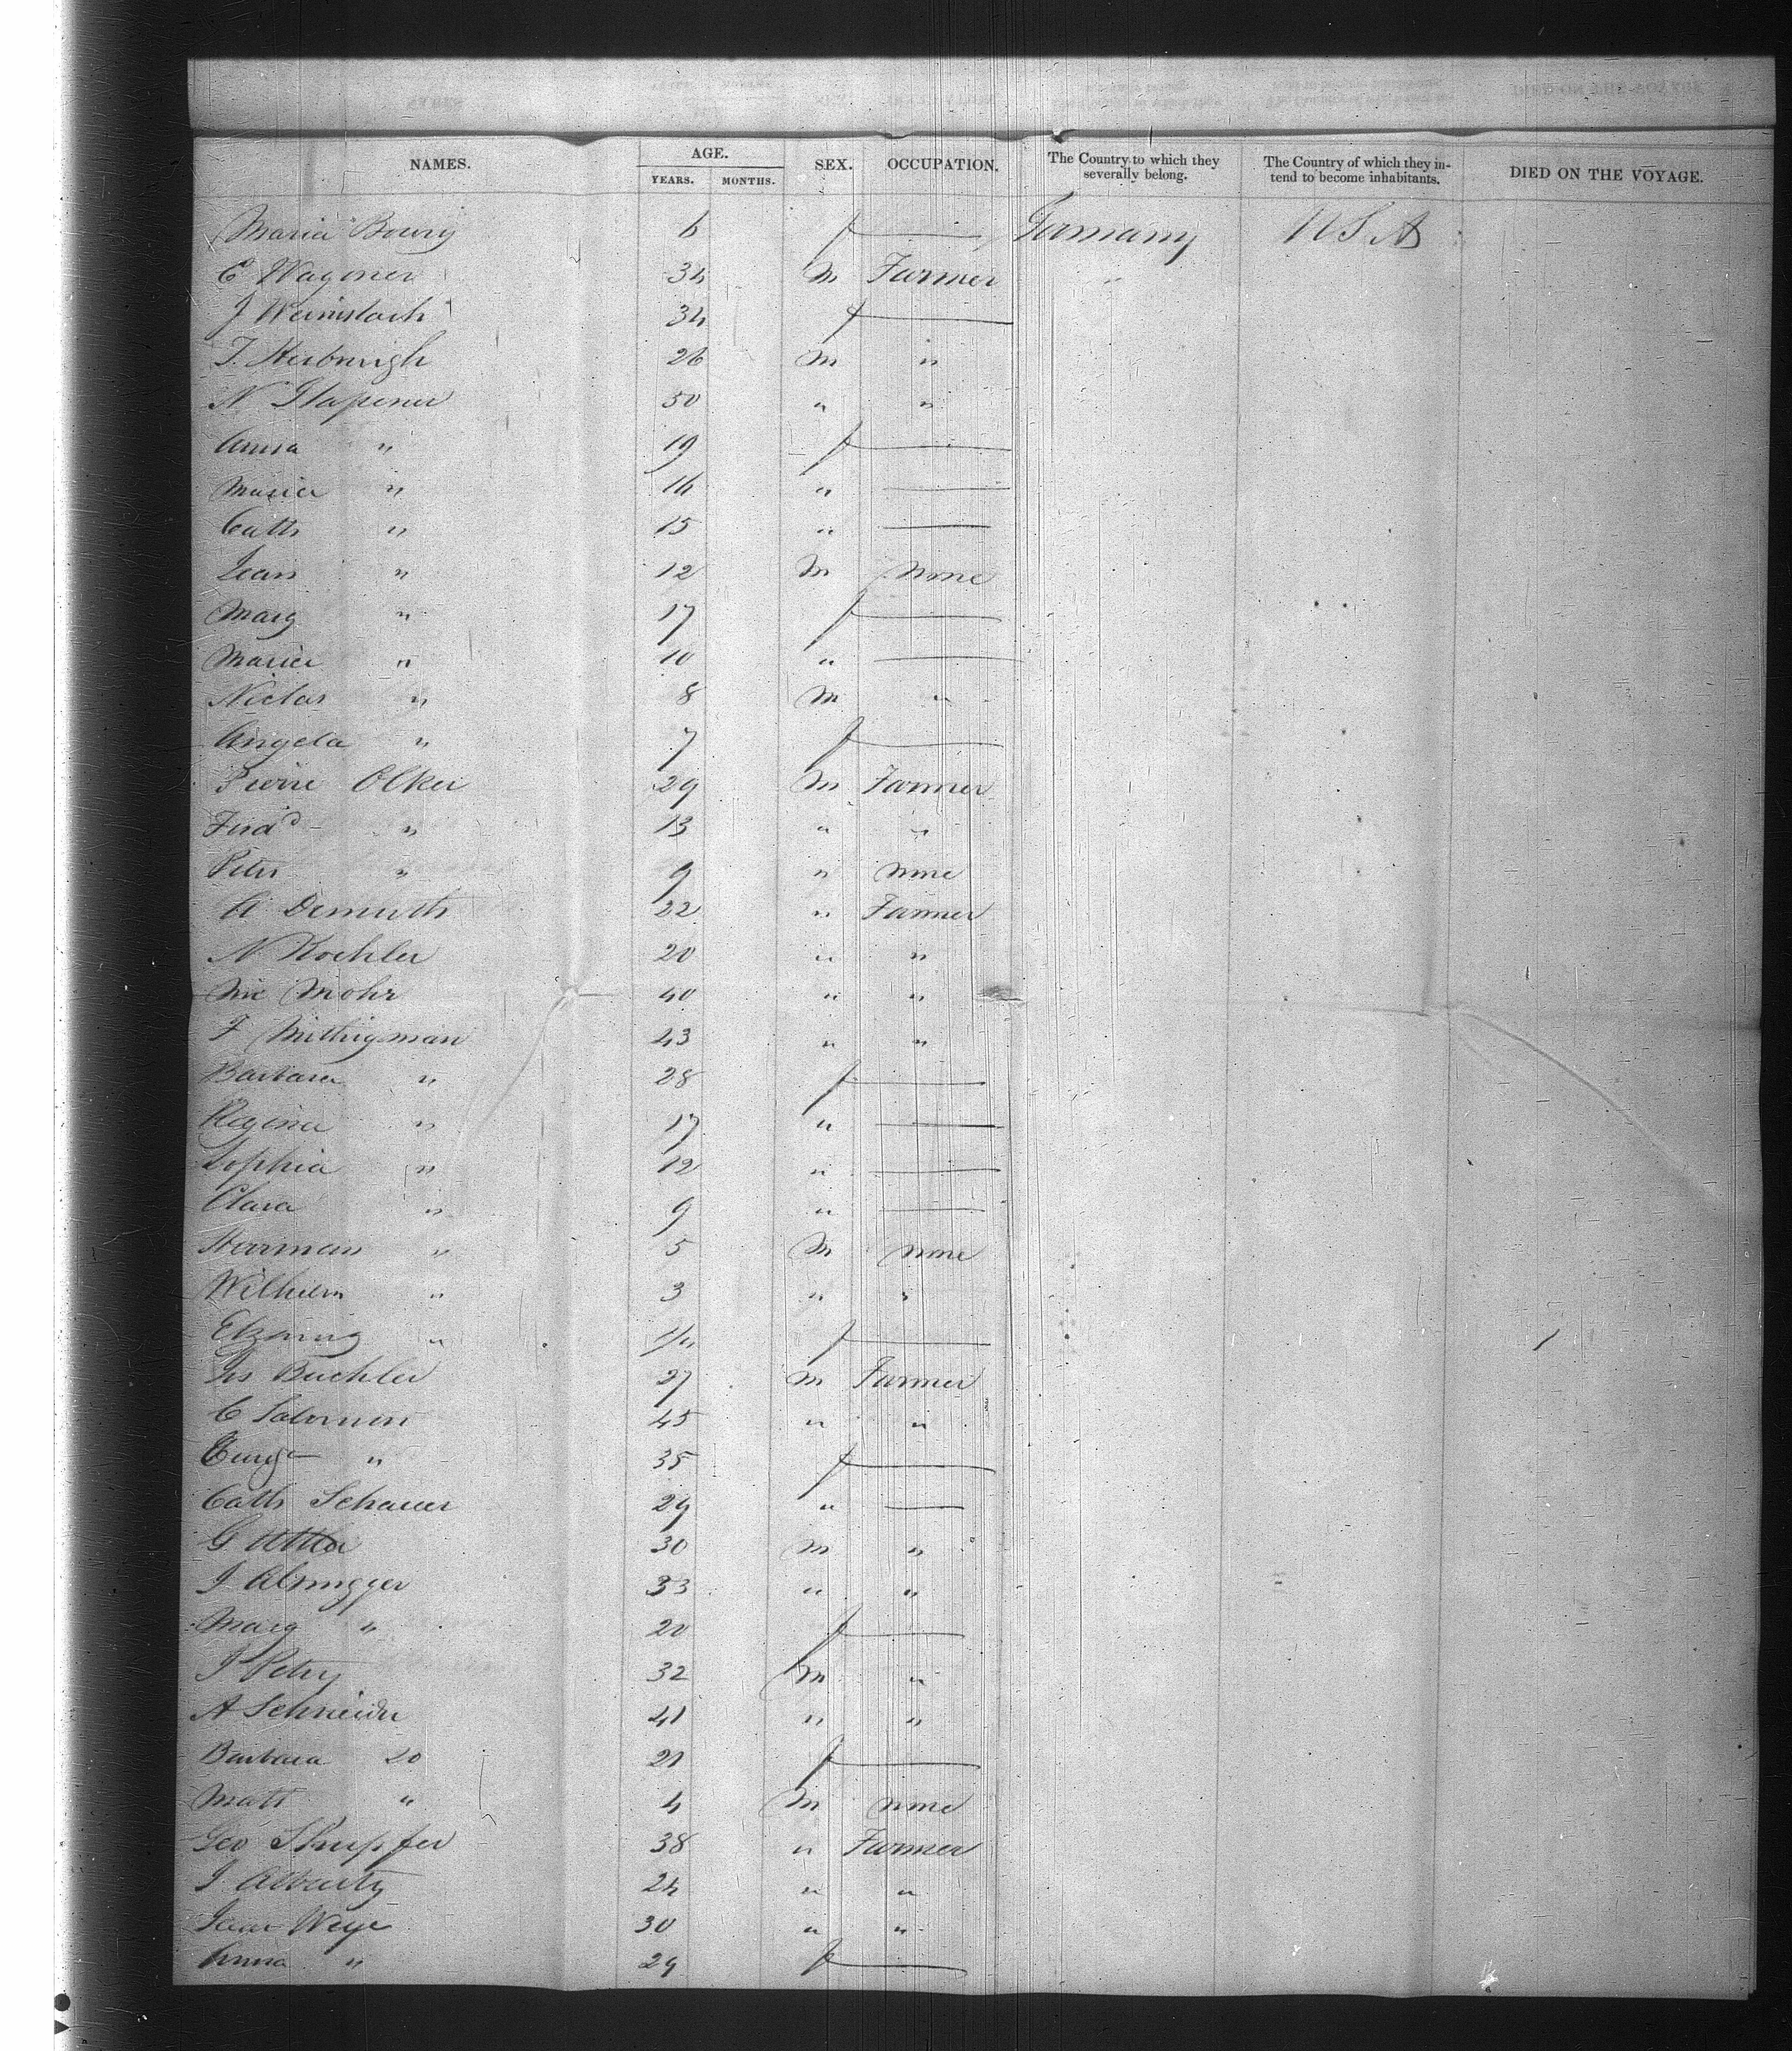 NAMES. AGE. SEX. OCCUPATION. The Country to which they severally belong. The Country of which they intend to become inhabitants. DIED ON THE VOYAGE.
YEARS. MONTHS.
Maria Boury 6 f — Germany U S A
C Wagoner 34 M Farmer
J 34 f —
T. 26 M "
N Stapener 50 " "
Anna " 19 f —
Maria " 14 " —
Cath " 15 " —
Jean " 12 M None
Marg " 17 f —
Maria " 10 " —
Niclas " 8 M "
Angela " 7 f —
Pierre Olker 29 M Farmer
Ferd " 13 " "
Peter " 9 " none
A Demuth 22 " Farmer
N Koehler 20 " "
Nic Mohr 40 " "
F Mithigman 43 " "
Barbara " 28 f —
Regina " 17 " —
Sophia " 12 " —
Clara " 9 " —
Herrman " 5 M none
Wilhelm " 3 " "
" f —
Jos Buchler 27 M Farmer
C Salomon 45 " "
" 35 f —
Cath Schauer 29 " —
G 30 M "
J 33 " "
Marg " 20 f —
J Petry 32 M "
A Schneider 41 " "
Barbara do 21 f —
Matt " 4 M none
Geo Shupfer 38 " Farmer
J 24 " "
Weye 30 " "
Anna " 29 f —